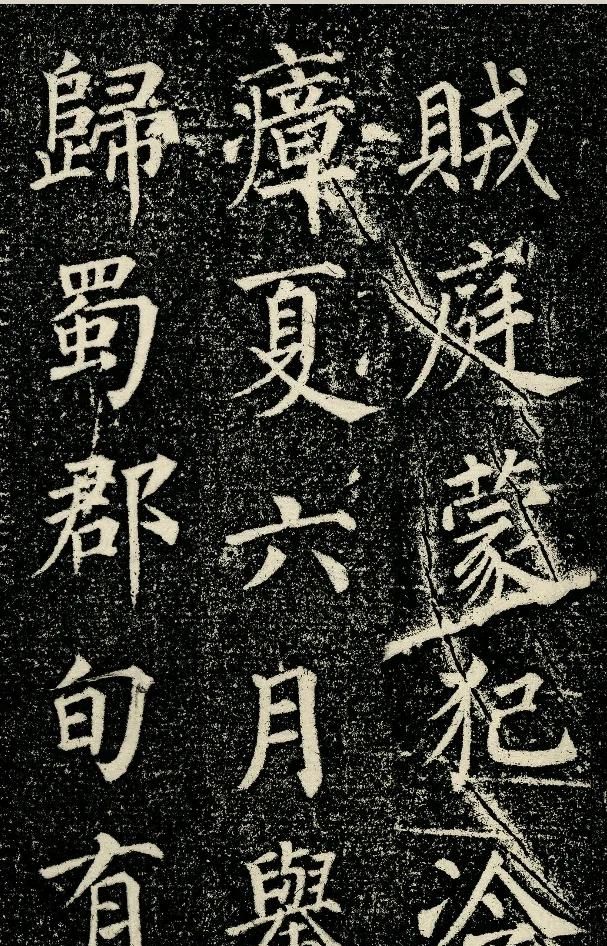 賊庭蒙犯
瘴夏六月舉
歸蜀郡旬有